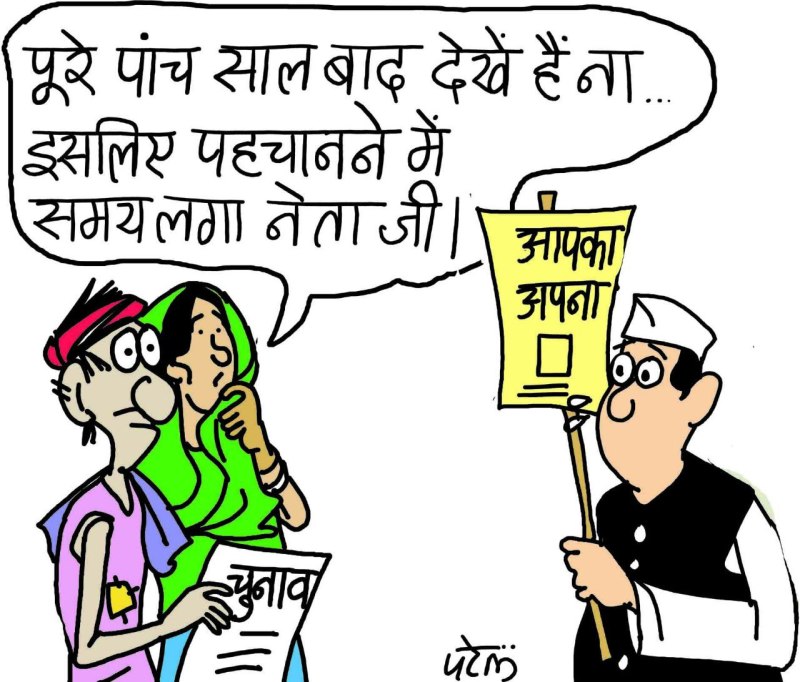 पूरे पांच साल बाद देखें हैं ना...
इसलिए पहचानने में
समय लगा नेता जी।
आपका
अपना
चुनाव
पटेल